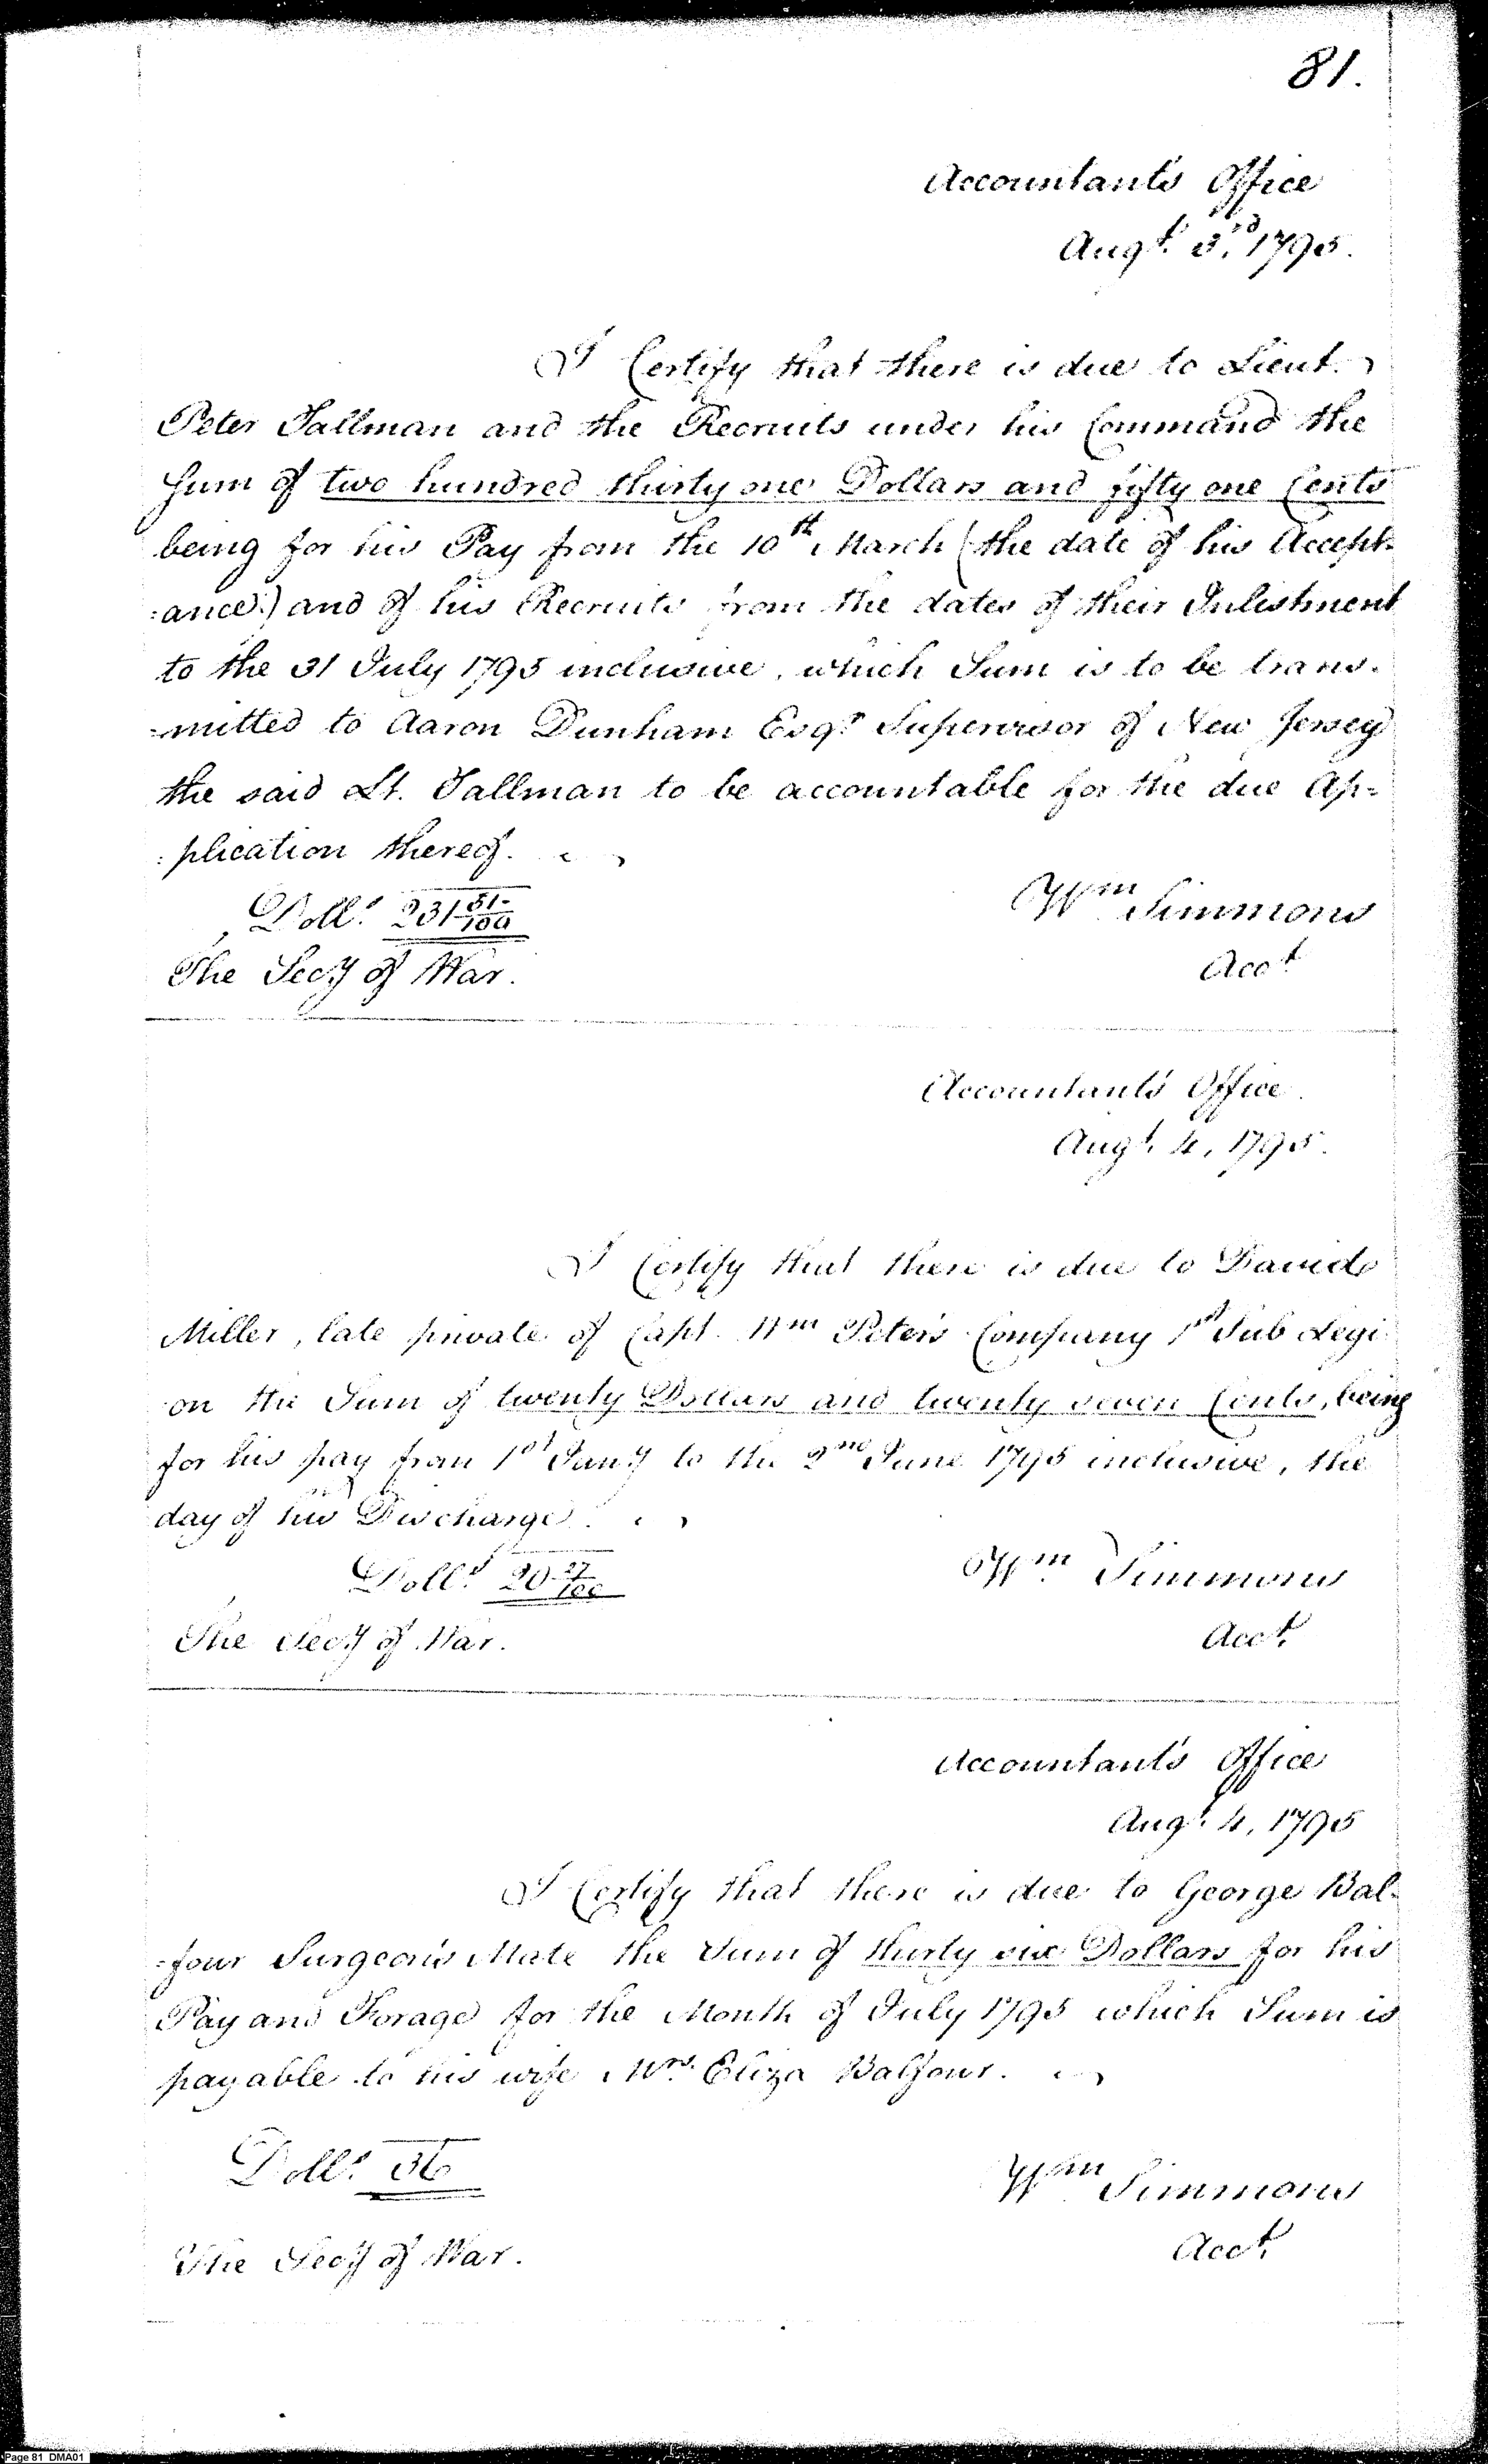 81.
Accountant's Office
Augt. 3rd, 1795.
I Certify that there is due to Lieut.
Peter Tallman and the Recruits under his Command the
Sum of two hundred thirty one Dollars and fifty one Cents
being for his Pay from the 10th March (the date of his Accept-
=ance) and of his Recruits from the dates of their Inlistment
to the 31 July 1795 inclusive, which Sum is to be trans-
=mitted to Aaron Dunham Esqr. Supervisor of New Jersey
the said Lt. Tallman to be accountable for the due Ap=
:plication thereof.
Dolls. 231 51/100
Wm Simmons
The Secy of War.
Acct
Accountant's Office.
Augt. 4, 1795.
I Certify that there is due to David
Miller, late private of Capt. Wm Peter's Company 1st Sub Legi
on the Sum of twenty Dollars and twenty seven Cents, being
for his pay from 1st Jany to the 2nd June 1795 inclusive, the
day of his Discharge.
Dolls. 20 27/100
Wm. Simmons
The Secy of War.
Acct.
Accountant's Office
Augt. 4, 1795
I Certify that there is due to George Bal-
=four Surgeon's Mate the Sum of thirty six Dollars for his
Pay and Forage for the Month of July 1795 which Sum is
payable to his wife Mrs. Eliza Balfour.
Dolls. 36
Wm Simmons
The Secy of War.
Acct.
Page 81 DMA01